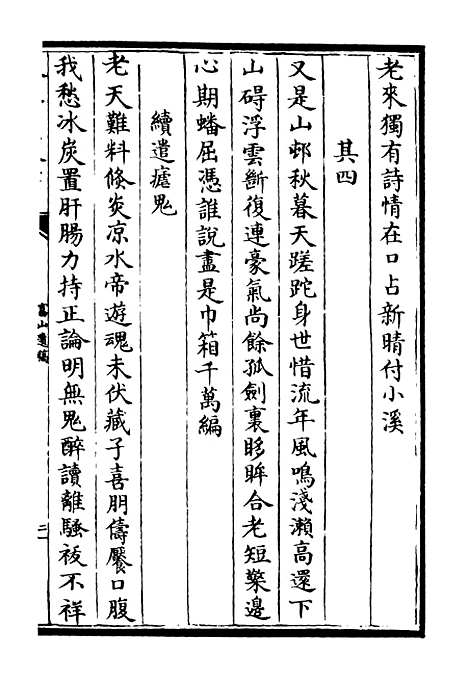 老來獨有詩情在口占新晴付小溪
其四
又是山邨秋暮天蹉跎身世惜流年風鳴淺瀨高還下
山碍浮雲斷復連豪氣尚餘孤劍裏眵眸合老短檠邊
心期蟠屈憑誰說盡是巾箱千萬編
續遣瘧鬼
老天難料倏炎凉水帝遊魂未伏藏子喜朋儔饜口腹
我愁冰炭置肝腸力持正論明無鬼醉讀離騷祓不祥
富山遺稿